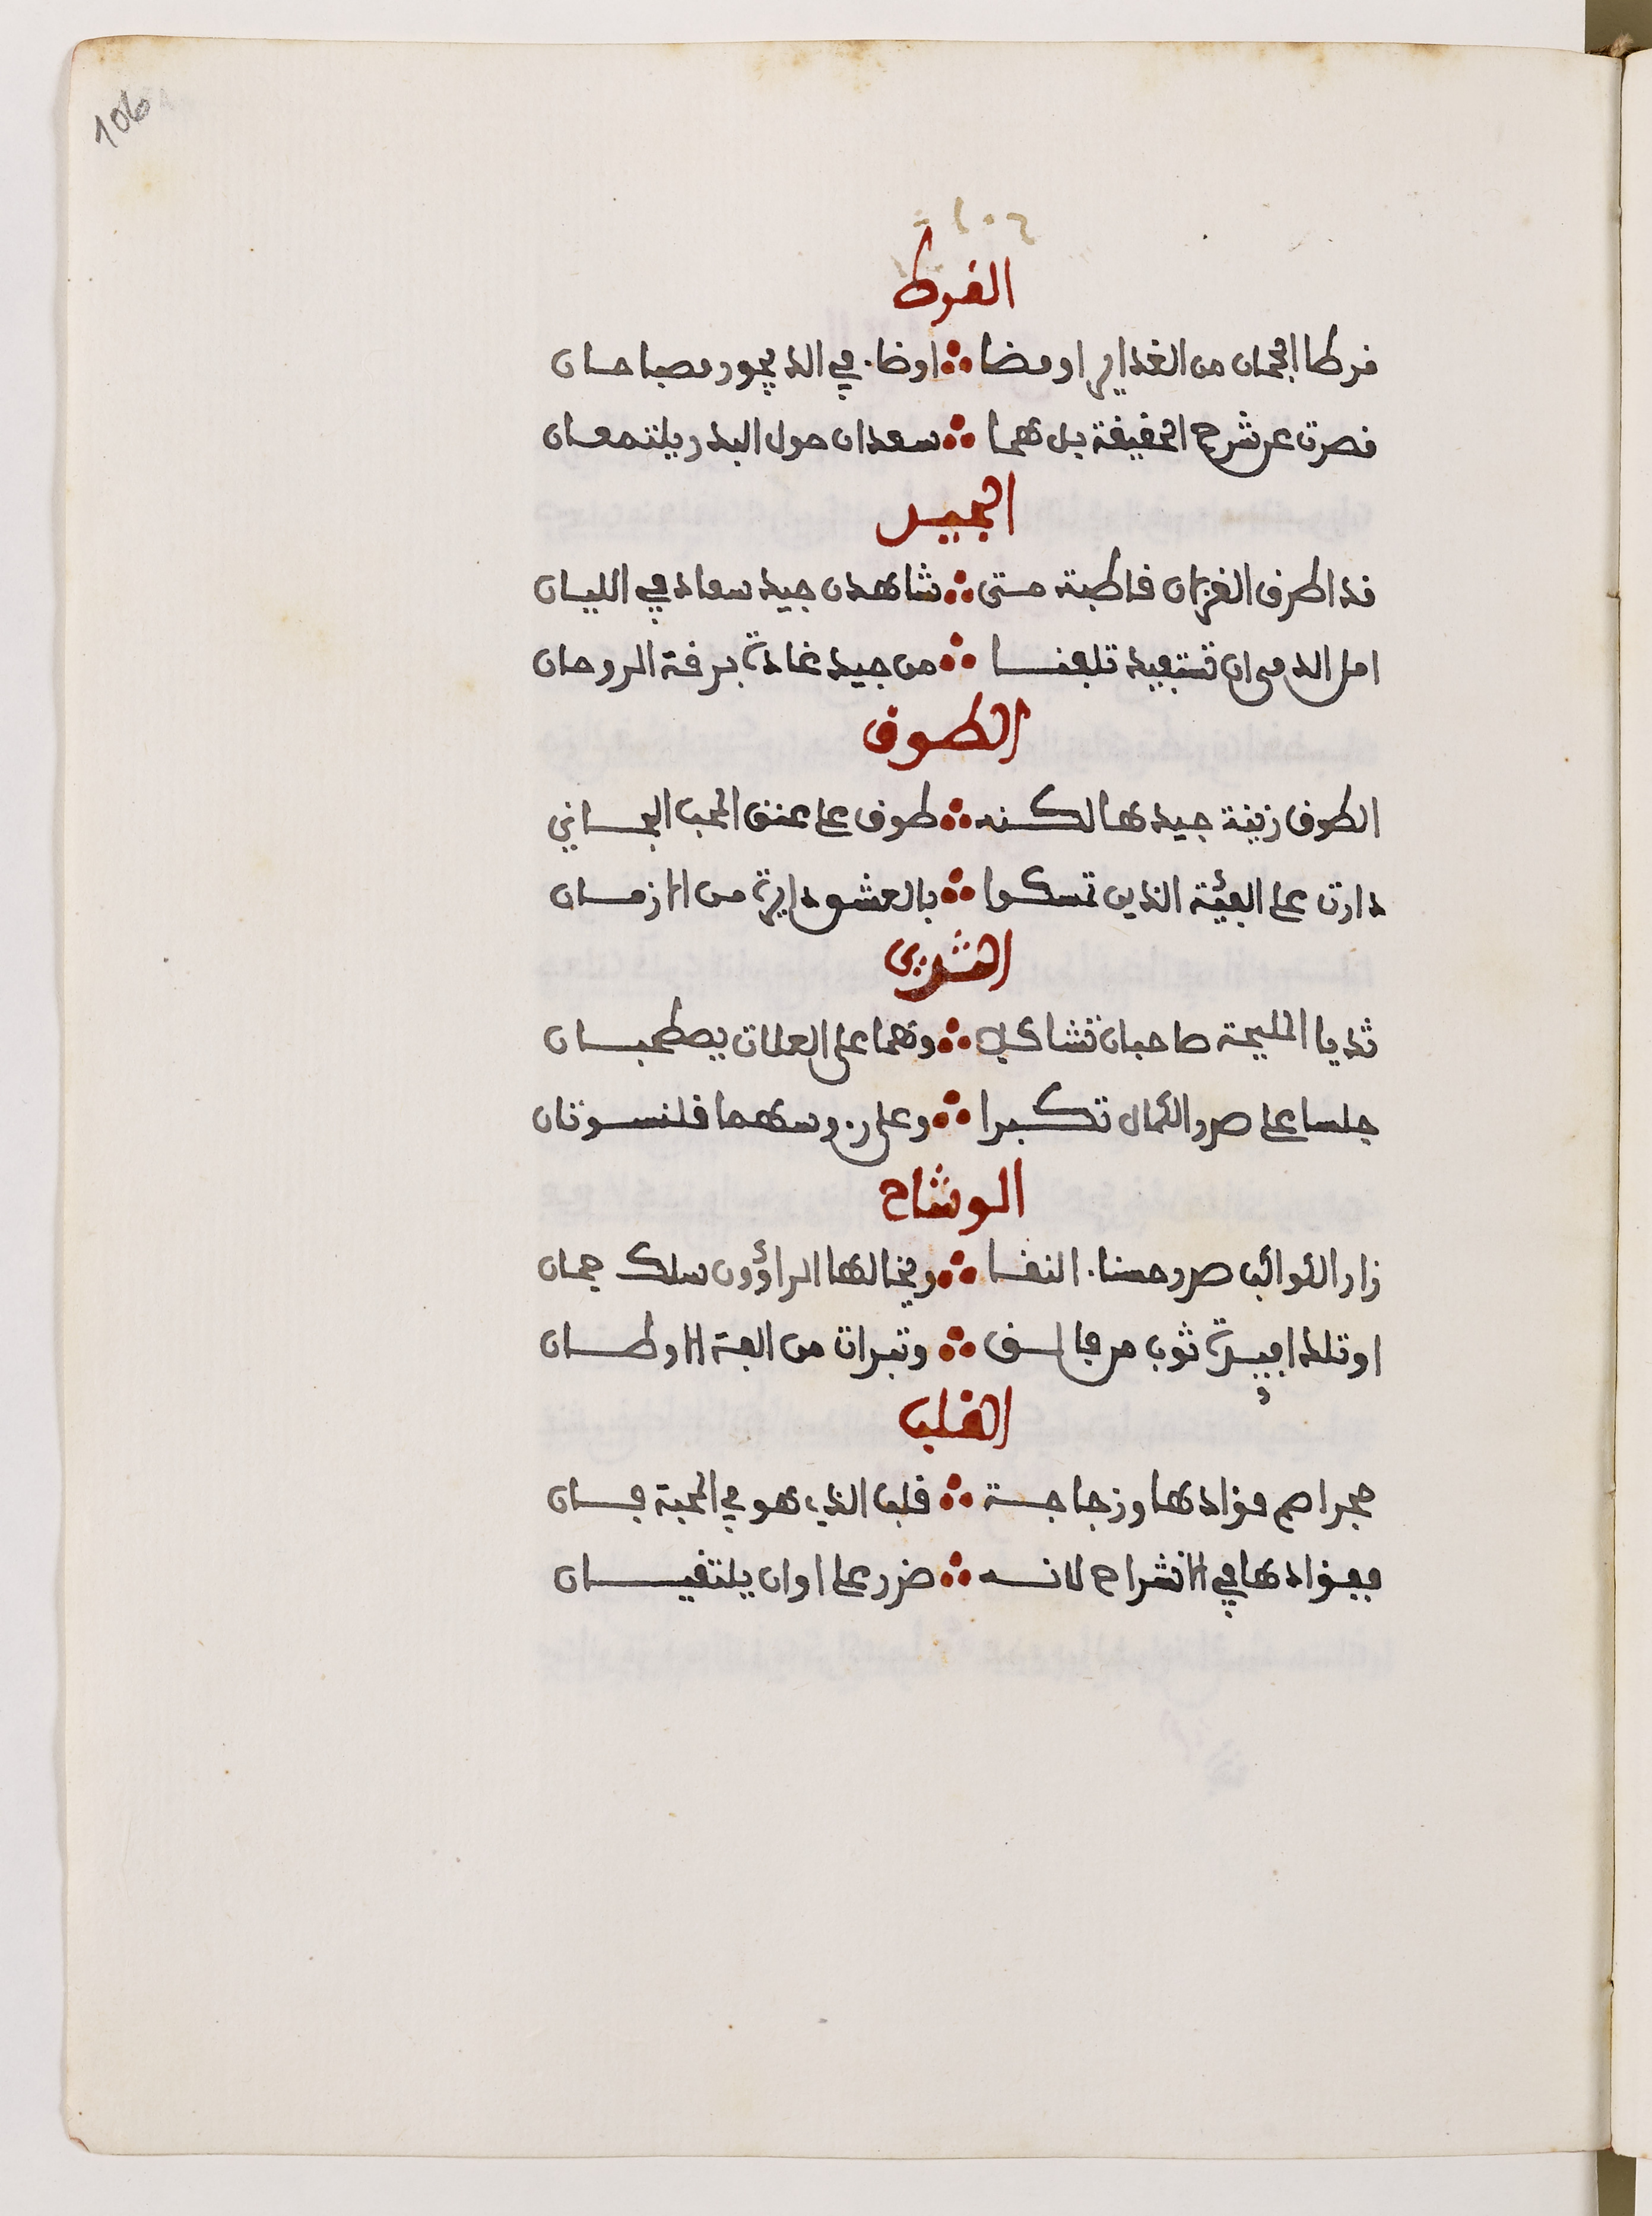 106
١٠٦
القرط
قرطا الجمان من الغداير اومضا ∴ اوضا. في الديجور مصباحان
قصرت عن شرح الحقيقة بل هما ∴ سعدان حول البدر يلتمعان
الجيد
قد اطرق الغزلان قاطبة متى ∴ شاهدن جيد سعاد في الليان
امل الدمى ان تستعيد تلعفا ∴ من جيد غادة برقة الروحان
الطوق
الطوق زينة جيدها لكنه ∴ طوق على عنق المحب الجاني
دارت على الفئة الذين تمسكوا ∴ بالعشق دايرة من الازمان
الثدي
ثديا المليحة صاحبان تشاكلا ∴ وهما على العلات يصطحبان
جلسا على صدر الكمال تكبرا ∴ وعلى ر.وسهما قلنسوتان
الوشاح
زار الكواكب صدر حسنا. النقا ∴ ويخالها الراؤون سلك جمان
او تلك اميرة ثوب من قالسف ∴ وتبرات من الفة الاوطان
القلب
حجر اصم فؤادها وزجاجة ∴ قلب الذي هو في المحبة فان
ففؤادها في الانشراح لانه ∴ ضرر على اوان يلتقيان